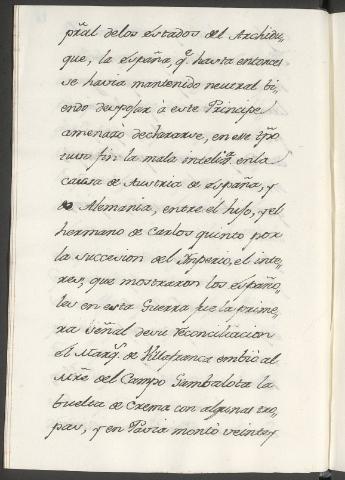 pral delos estados del Archidu=
que, la España, q.e hasta entonces
se havia mantenido neutral bi,
endo despojar à este Principe
amenazò declararse, en este tpo
tuvo fin la mala intelig.a enla
causa de Austria de España, y
de Alemania, entre el hijo, y el
hermano de Carlos quinto por
la succesion del Imperio, el inte,,
res, que mostraron los españo,,
les en esta Guerra fue la prime,,
ra señal desu reconciliacion
el Marq.s de Villafranca embiò al
Mre del Campo Gambalota la
buelta de Crema con algunas tro,,
pas, y en Pavia montò veinte y